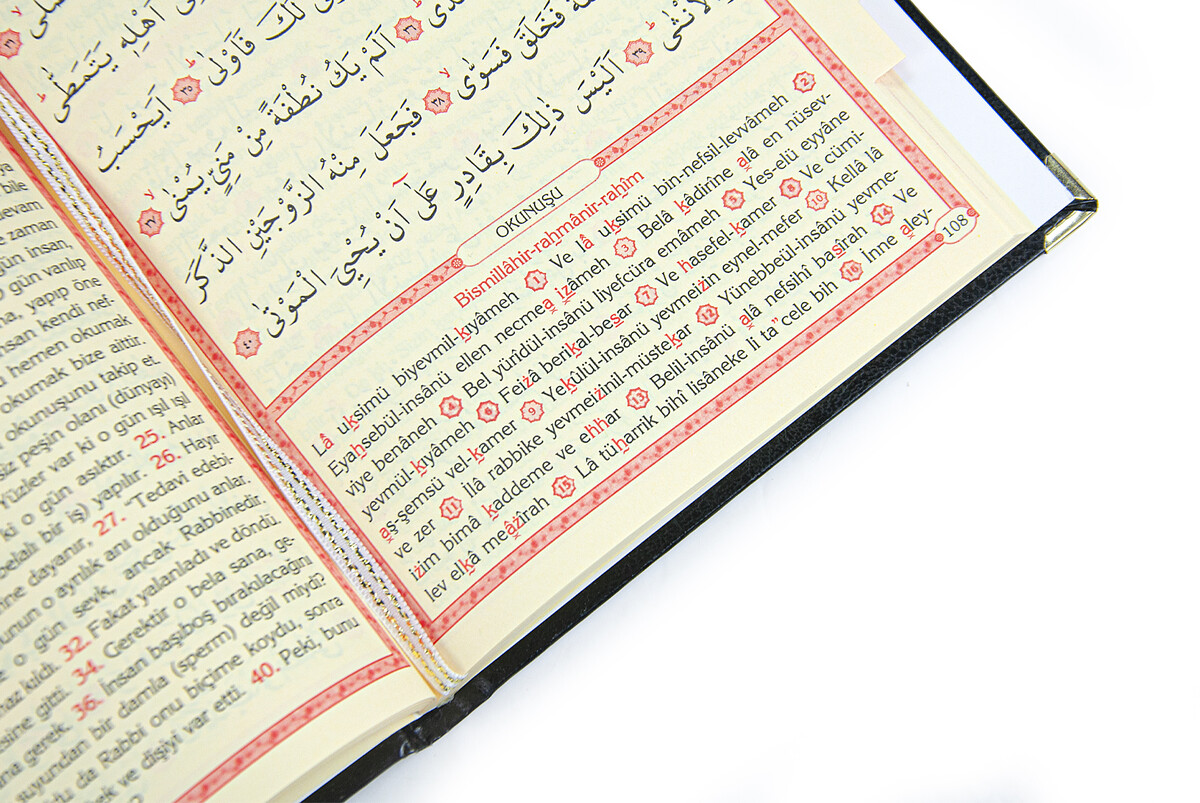 اَهْلِهٖ يَتَمَطّٰى
لَكَ فَاَوْلٰى ﴿٣٥﴾ اَيَحْسَبُ
﴿٣٦﴾ اَلَمْ يَكُ نُطْفَةً مِنْ مَنِيٍّ يُمْنٰى ﴿٣٧﴾
فَخَلَقَ فَسَوّٰى ﴿٣٨﴾ فَجَعَلَ مِنْهُ الزَّوْجَيْنِ الذَّكَرَ
الْاُنْثٰى ﴿٣٩﴾ اَلَيْسَ ذٰلِكَ بِقَادِرٍ عَلٰٓى اَنْ يُحْيِيَ الْمَوْتٰى ﴿٤٠﴾
OKUNUŞU
Bismillâhir-rahmânir-rahîm
Lâ uksimü biyevmil-kıyâmeh 1 Ve lâ uksimü bin-nefsil-levvâmeh 2
Eyahsebül-insânü ellen necmea izâmeh 3 Belâ kâdirîne alâ en nüsev-
viye benâneh 4 Bel yürîdül-insânü liyefcüra emâmeh 5 Yes-elü eyyâne
yevmül-kıyâmeh 6 Feizâ berikal-besar 7 Ve hasefel-kamer 8 Ve cümi-
aş-şemsü vel-kamer 9 Yekülül-insânü yevmeizin eynel-mefer 10 Kellâ lâ
ve zer 11 İlâ rabbike yevmeizinil-müstekar 12 Yünebbeül-insânü yevme-
izim bimâ kaddeme ve ehhar 13 Belil-insânü alâ nefsihî basîrah 14 Ve
lev elkâ meâzîrah 15 Lâ tüharrik bihî lisâneke li ta"cele bih 16 İnne aley-
108
bile
devam
zaman
gün insan,
gün varılıp
yapıp öne
insan kendi nef-
hemen okumak
okumak bize aittir.
okunuşunu takip et.
siz peşin olanı (dünyayı)
Yüzler var ki o gün ışıl ışıl
ki o gün asıktır. 25. Anlar
belalı bir iş) yapılır. 26. Hayır
dayanır, 27. "Tedavi edebi-
bunun o ayrılık anı olduğunu anlar.
o gün sevk, ancak Rabbinedir.
kıldı. 32. Fakat yalanladı ve döndü.
gitti. 34. Gerektir o bela sana, ge-
gerek. 36. İnsan başıboş bırakılacağını
suyundan bir damla (sperm) değil miydi?
da Rabbi onu biçime koydu, sonra
ve dişiyi var etti. 40. Peki, bunu